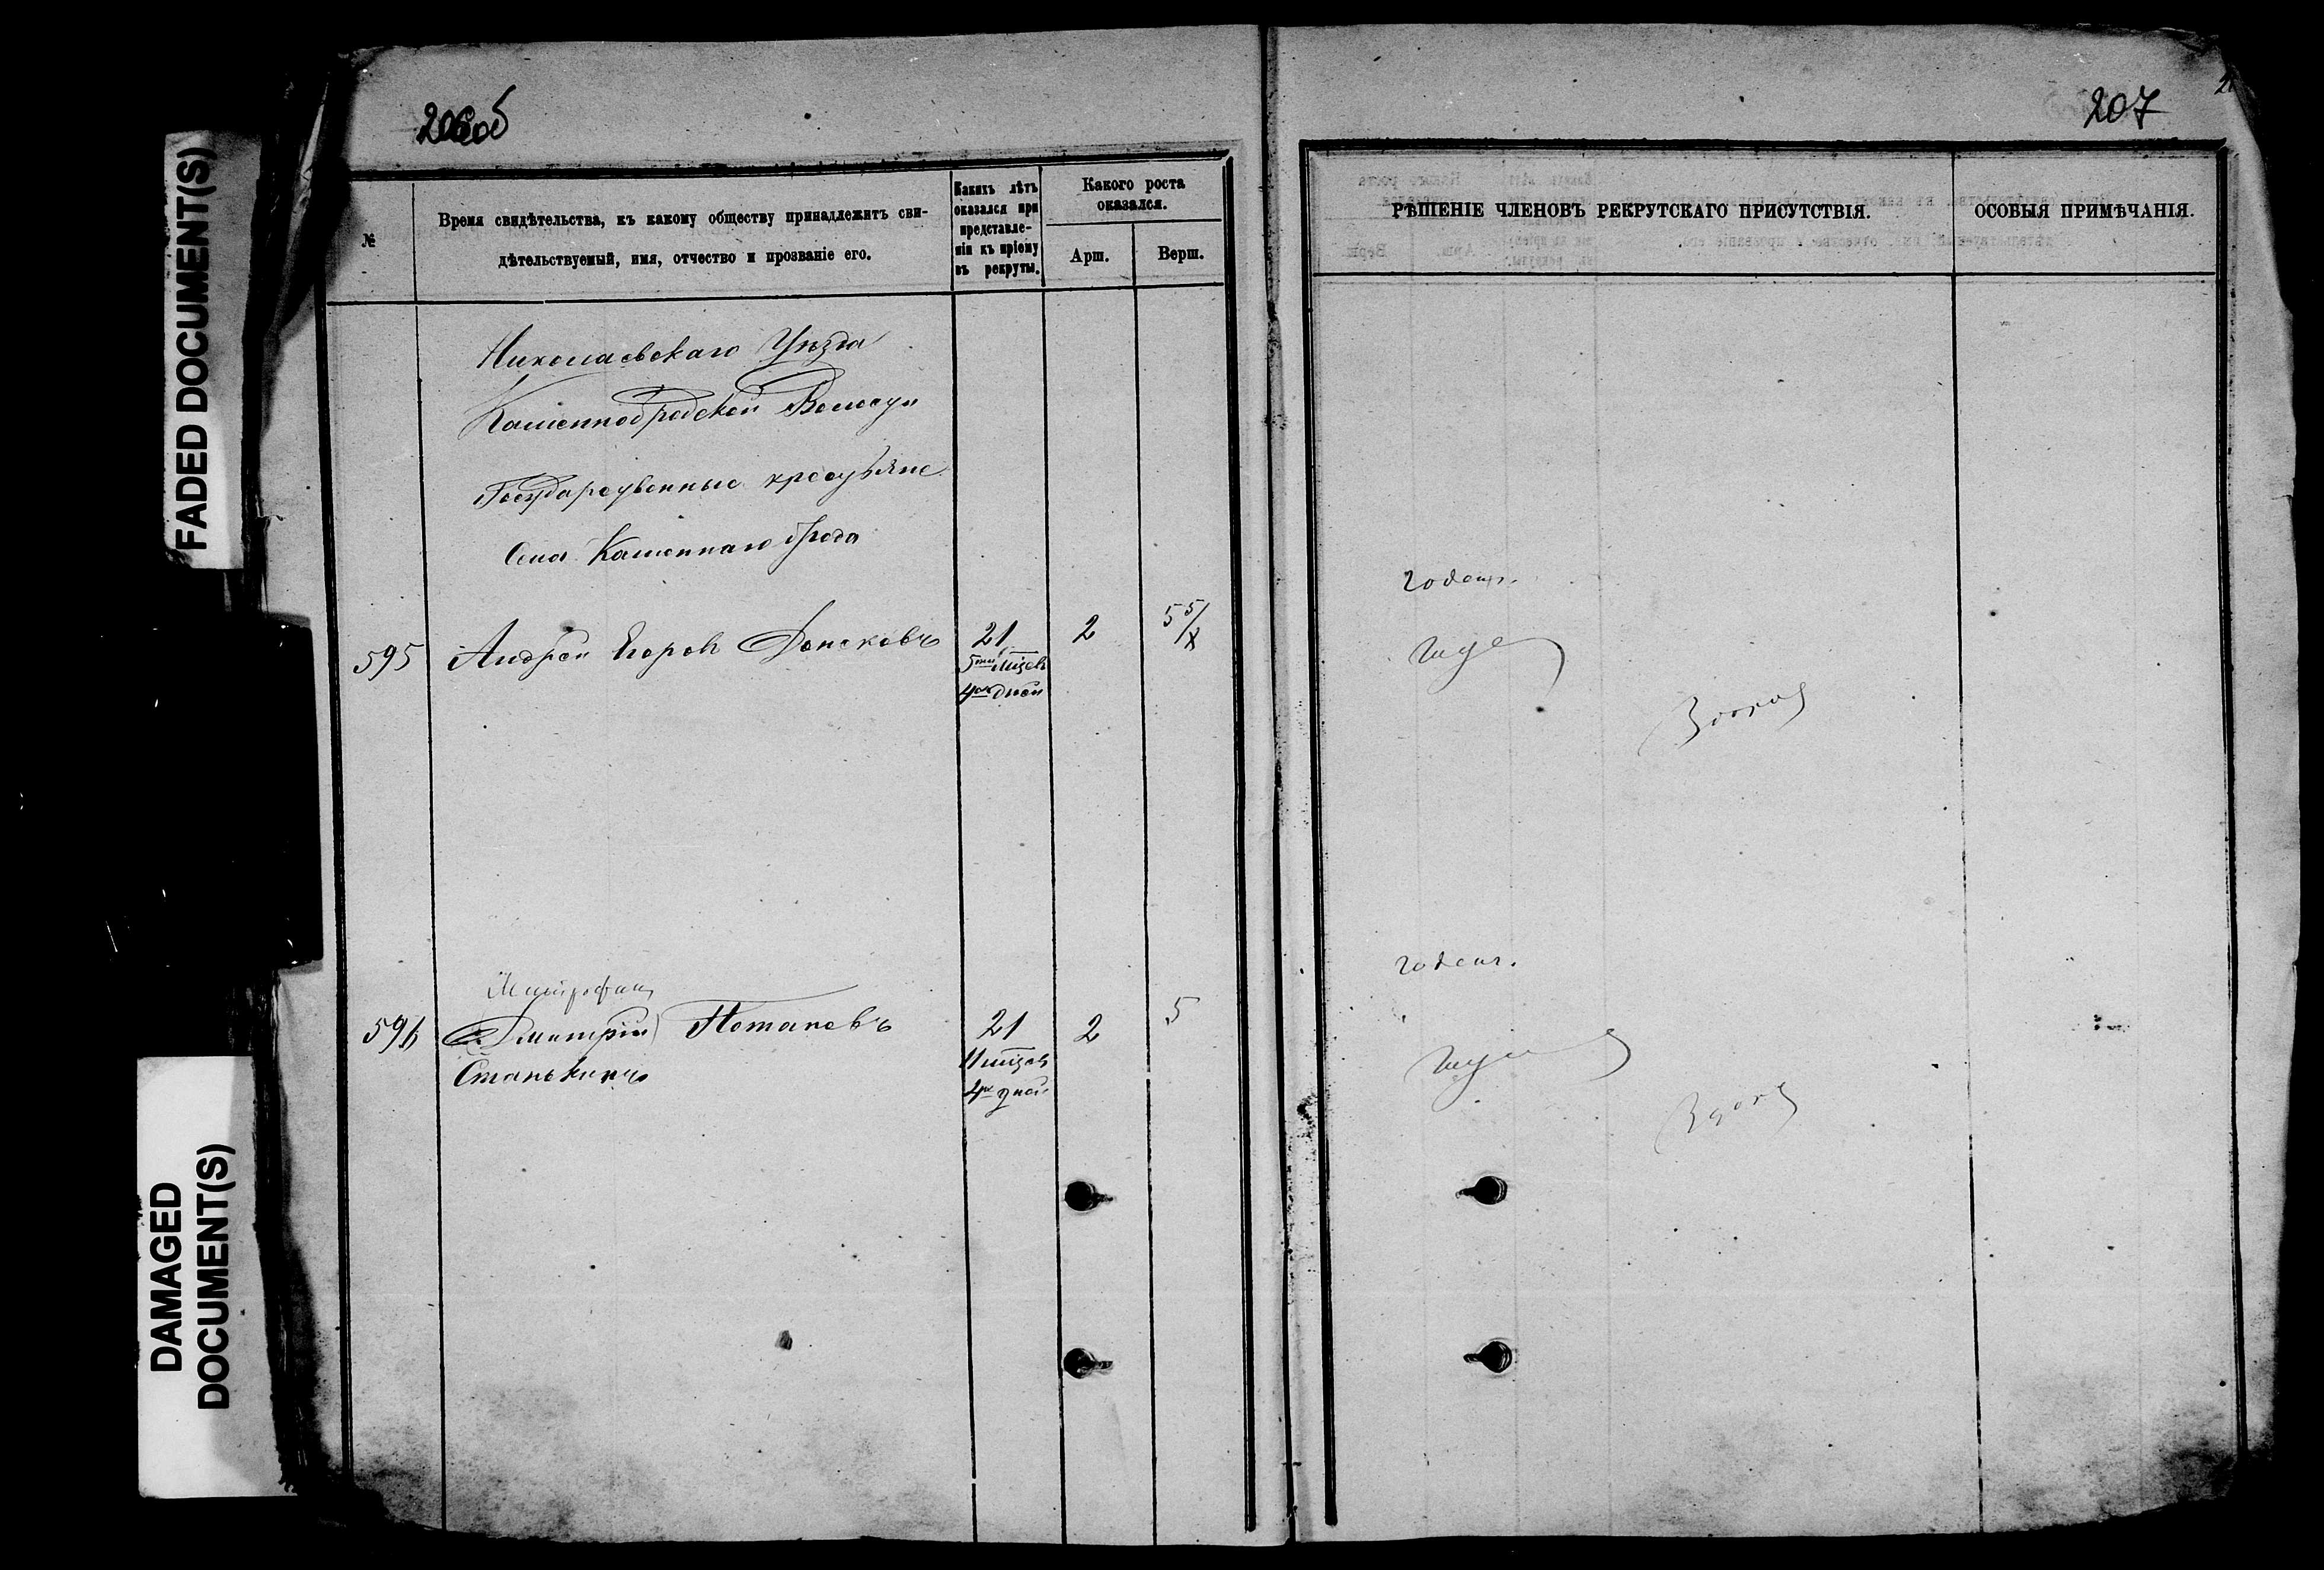 FADED DOCUMENT(S)
DAMAGED
DOCUMENT(S)
206об
№
Время свидѣтельства, къ какому обществу принадлежитъ сви-
дѣтельствуемый, имя, отчество и прозваніе его.
Какихъ лѣтъ
оказался при
представле-
ніи къ пріему
въ рекруты.
Какого роста
оказался.
Арш.
Верш.
Николаевскаго Уѣзда
Каменнобродской Волости
Государственные крестьяне
Села Каменнаго брода
595 Андрей Егоровъ Донсковъ 21 2 5 5/
5ти мцевъ
4хъ дней
Митрофанъ
596 Дмитрій Потаповъ 21 2 5
Станькинъ 11 мцевъ
4хъ дней
207
РѢШЕНІЕ ЧЛЕНОВЪ РЕКРУТСКАГО ПРИСУТСТВІЯ.
ОСОБЫЯ ПРИМѢЧАНІЯ.
годенъ.
годенъ.